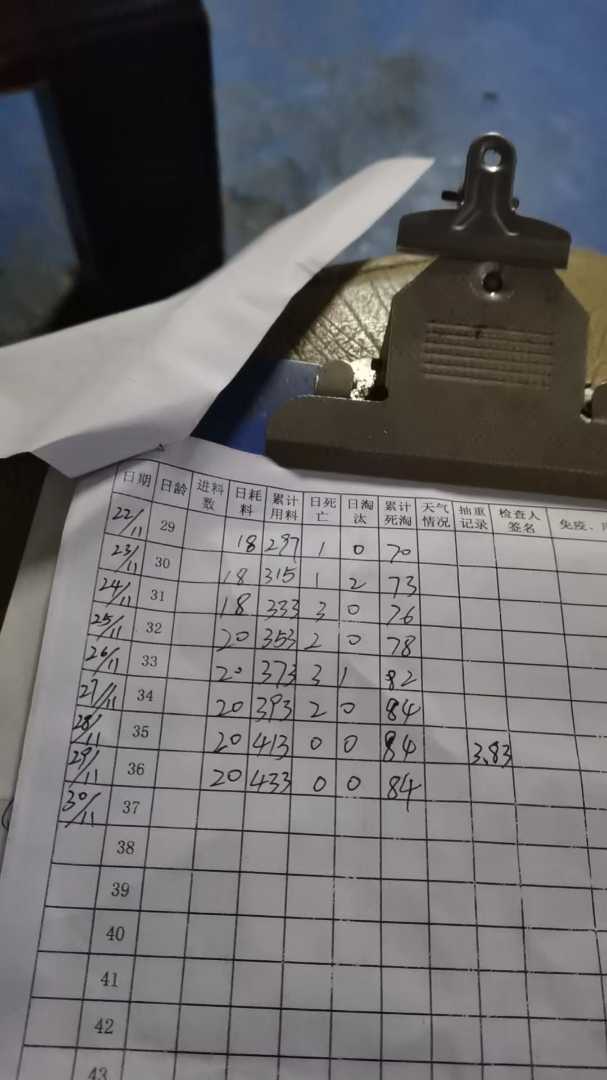 日期 日龄 进料数 日耗料 累计用料 日死亡 日淘汰 累计死淘 天气情况 抽重记录 检查人签名 免疫、
22/11 29 18 297 1 0 70
23/11 30 18 315 1 2 73
24/11 31 18 333 3 0 76
25/11 32 20 353 2 0 78
26/11 33 20 373 3 1 82
27/11 34 20 393 2 0 84
28/11 35 20 413 0 0 84 3.83
29/11 36 20 433 0 0 84
30/11 37
38
39
40
41
42
43